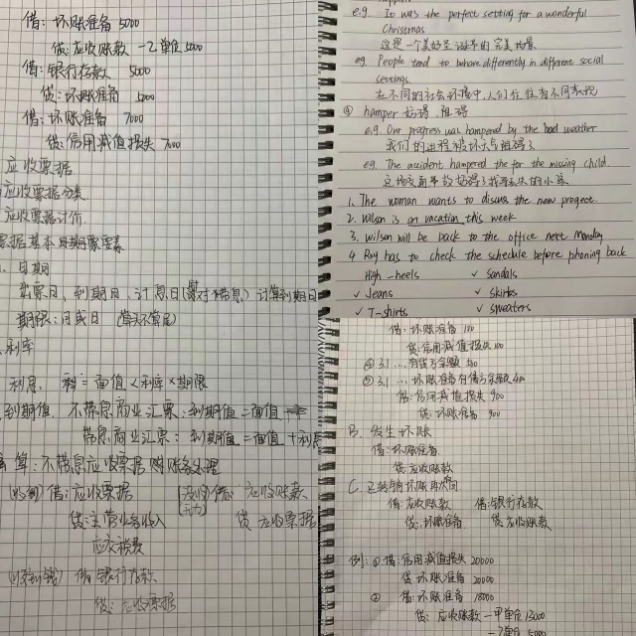 借：坏账准备 5000
贷：应收账款—乙单位 5000
借：银行存款 5000
贷：坏账准备 5000
借：坏账准备 7000
贷：信用减值损失 7000
应收票据
应收票据分类
应收票据计价
日期
出票日，到期日，计息日 计算到期日
期限：月或日
利率
利息： 面值×利率×期限
到期值 不带息商业汇票：到期值=面值
带息商业汇票：到期值=面值+利息
算：不带息应收票据 账务处理
(收到) 借：应收票据 借：应收账款
贷：主营业务收入 贷：应收票据
应交税费
借：银行存款
贷：应收票据
e.g. It was the perfect setting for a wonderful
Christmas
这是一个美好圣诞节的完美场景
eg. People tend to behave differently in different social
settings
在不同的社会环境中，人们往往有不同表现
④ hamper 妨碍 阻碍
e.g. Our progress was hampered by the bad weather
我们的进程被坏天气阻碍了
eg. The accident hampered the for the missing child.
1. The woman wants to discuss the new progect.
2. Wilson is on vacation this week
3. Wilson will be back to the office next Monday
4 Roy has to check the schedule before phoning back
High-heels ✓ Sandals
✓ Jeans ✓ Skirts
✓ T-shirts ✓ sweaters
借：坏账准备 100
贷：信用减值损失 100
借：信用减值损失 900
贷：坏账准备 900
B. 发生坏账
借：坏账准备
贷：应收账款
C. 已转销坏账又收回
借：应收账款 借：银行存款
贷：坏账准备 贷：应收账款
例：① 借：信用减值损失 20000
贷：坏账准备 20000
② 借：坏账准备 18000
贷：应收账款—甲单位 13000
—乙单位 5000